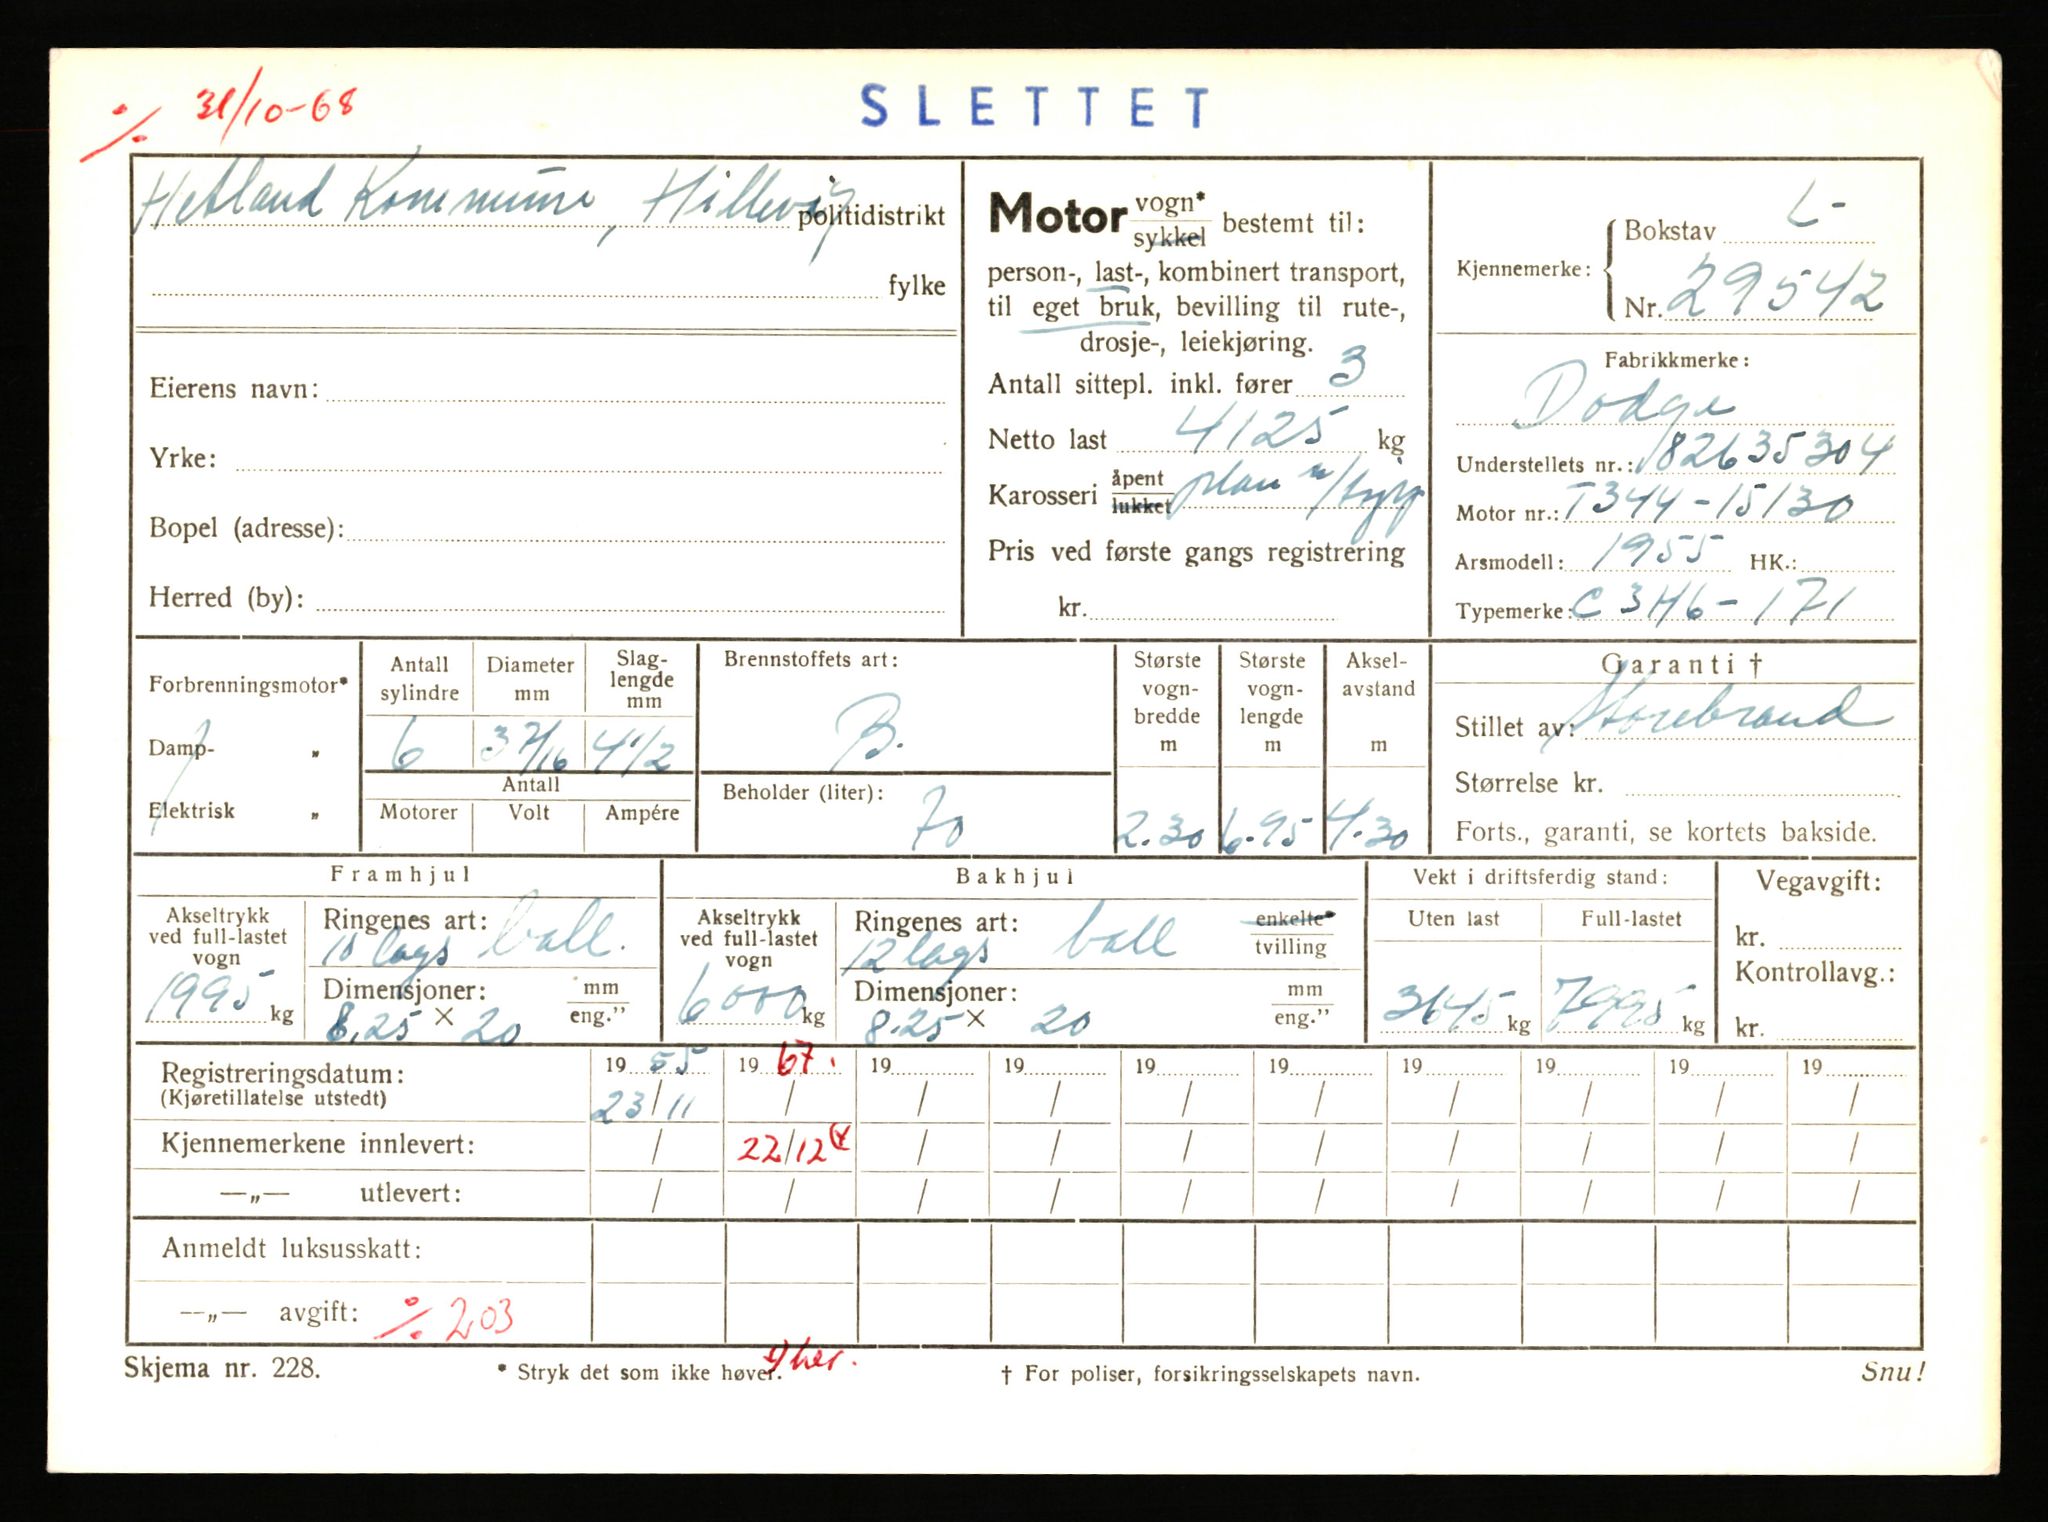 % 31/10-68
SLETTET
Hetland Kommune, Hillevåg politidistrikt
fylke
Eierens navn:
Yrke:
Bopel (adresse):
Herred (by):
Motor vogn* sykkel bestemt til:
person-, last-, kombinert transport,
til eget bruk, bevilling til rute-,
drosje-, leiekjøring.
Antall sittepl. inkl. fører 3
Netto last 4125 kg
Karosseri åpent lukket plan m/tipp
Pris ved første gangs registrering
kr.
Kjennemerke: Bokstav L-
Nr. 29542
Fabrikkmerke:
Dodge
Understellets nr.: 82635304
Motor nr.: T344-15130
Arsmodell: 1955 HK.:
Typemerke: C3H6-171
Forbrenningsmotor*
Damp- „
Elektrisk „
Antall sylindre 6
Diameter mm 3 7/16
Slag-lengde mm 4 1/2
Antall
Motorer Volt Ampére
Brennstoffets art:
B.
Beholder (liter): 70
Største vogn-bredde m 2.30
Største vogn-lengde m 6.95
Aksel-avstand m 4.30
Garanti †
Stillet av: Storebrand
Størrelse kr.
Forts., garanti, se kortets bakside.
Framhjul
Akseltrykk ved full-lastet vogn 1995 kg
Ringenes art: 10 lags ball.
Dimensjoner: 8.25 x 20 mm eng."
Bakhjul
Akseltrykk ved full-lastet vogn 6000 kg
Ringenes art: 12 lags ball enkelte* tvilling
Dimensjoner: 8.25 x 20 mm eng."
Vekt i driftsferdig stand:
Uten last 3645 kg
Full-lastet 7995 kg
Vegavgift:
kr.
Kontrollavg.:
kr.
Registreringsdatum: 19 55 19 67. 19 19 19 19 19 19 19 19
(Kjøretillatelse utstedt) 23/11 / / / / / / / / /
Kjennemerkene innlevert: / 22/12 / / / / / / / /
—„— utlevert: / / / / / / / / / /
Anmeldt luksusskatt:
—„— avgift: % 203
Skjema nr. 228.
* Stryk det som ikke høver.
her.
† For poliser, forsikringsselskapets navn.
Snu!